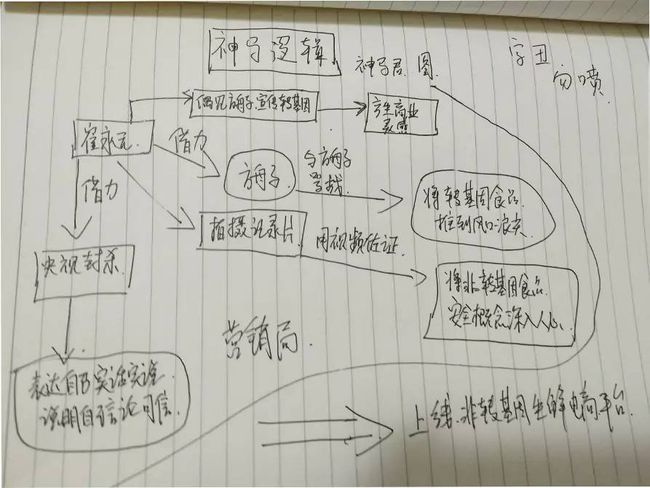 神子逻辑
神子君.图.
字丑
勿喷.
偶见方舟子.宣传转基因
产生商业
灵感
崔永元
借力
方舟子.
与方舟子
骂战.
将转基因食品
推到风口浪尖
借力
拍摄记录片
用视频佐证.
将非转基因食品
安全概念深入人心.
央视封杀.
营销局.
表达自己实话实说.
说明自己言论可信.
上线.非转基因生鲜电商平台.